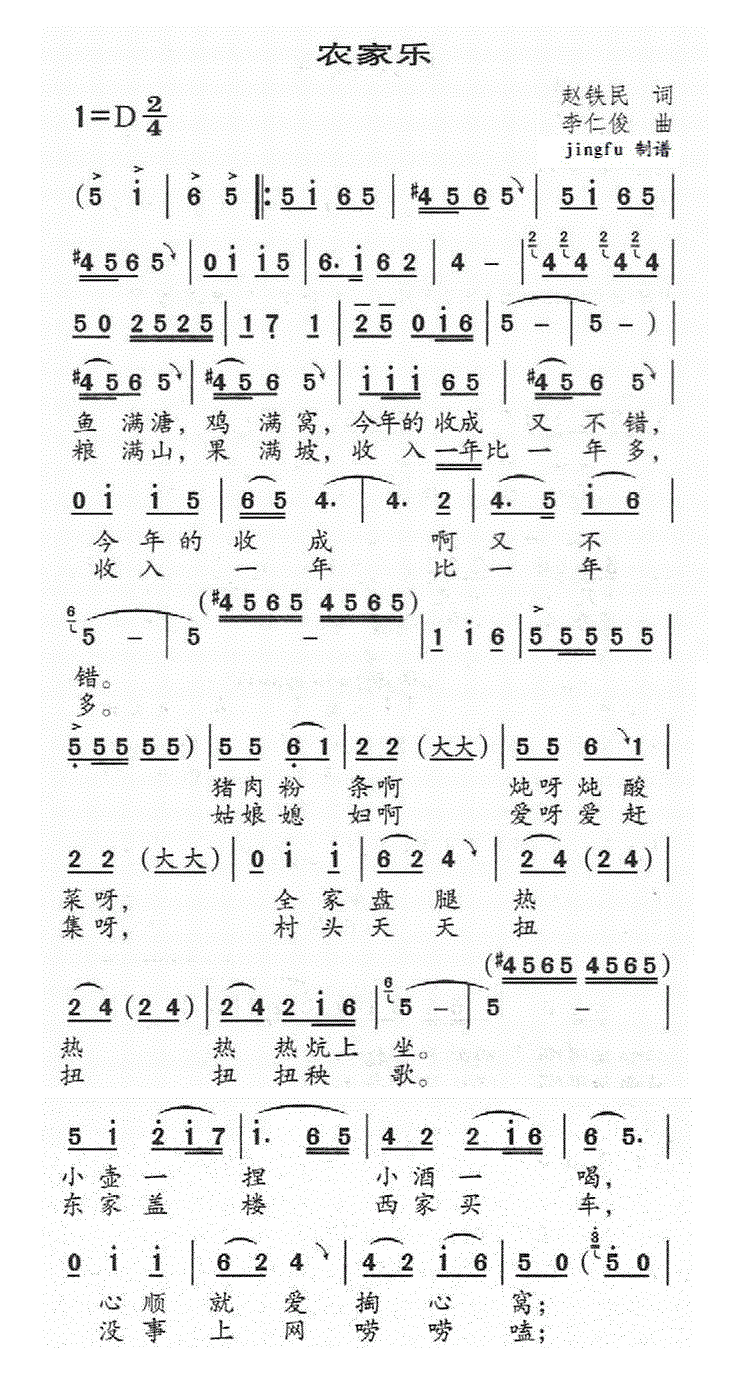 农家乐
赵铁民 词
1=D 2/4
李仁俊 曲
jingfu 制谱
(5 i | 6 5 |: 5 i 6 5 | #4 5 6 5 | 5 i 6 5 |
#4 5 6 5 | 0 i i 5 | 6. i 6 2 | 4 - | 2 4 2 4 2 4 2 4 |
5 0 2 5 2 5 | 1 7 1 | 2 5 0 i 6 | 5 - | 5 - ) |
#4 5 6 5 | #4 5 6 5 | i i i 6 5 | #4 5 6 5 |
鱼 满溏, 鸡 满 窝, 今年的 收成 又 不 错,
粮 满山, 果 满 坡, 收 入 一年比 一 年 多,
0 i i 5 | 6 5 4. | 4. 2 | 4. 5 i 6 |
今 年 的 收 成 啊 又 不
收 入 一 年 比 一 年
(#4 5 6 5 4 5 6 5)
6 5 - | 5 - | 1 i 6 | 5 5 5 5 5 |
错。
多。
5 5 5 5 5 ) | 5 5 6 1 | 2 2 (大大) | 5 5 6 1 |
猪 肉 粉 条 啊 炖 呀 炖 酸
姑 娘 媳 妇 啊 爱 呀 爱 赶
2 2 (大 大) | 0 i i | 6 2 4 | 2 4 (2 4) |
菜 呀, 全 家 盘 腿 热
集 呀, 村 头 天 天 扭
(#4 5 6 5 4 5 6 5)
2 4 (2 4) | 2 4 2 i 6 | 6 5 - | 5 - |
热 热 热 炕 上 坐。
扭 扭 扭 秧 歌。
5 i 2 i 7 | i. 6 5 | 4 2 2 i 6 | 6 5. |
小 壶 一 捏 小 酒 一 喝,
东 家 盖 楼 西 家 买 车,
0 i i | 6 2 4 | 4 2 i 6 | 5 0 ( 3 5 0 |
心 顺 就 爱 掏 心 窝;
没 事 上 网 唠 唠 嗑;